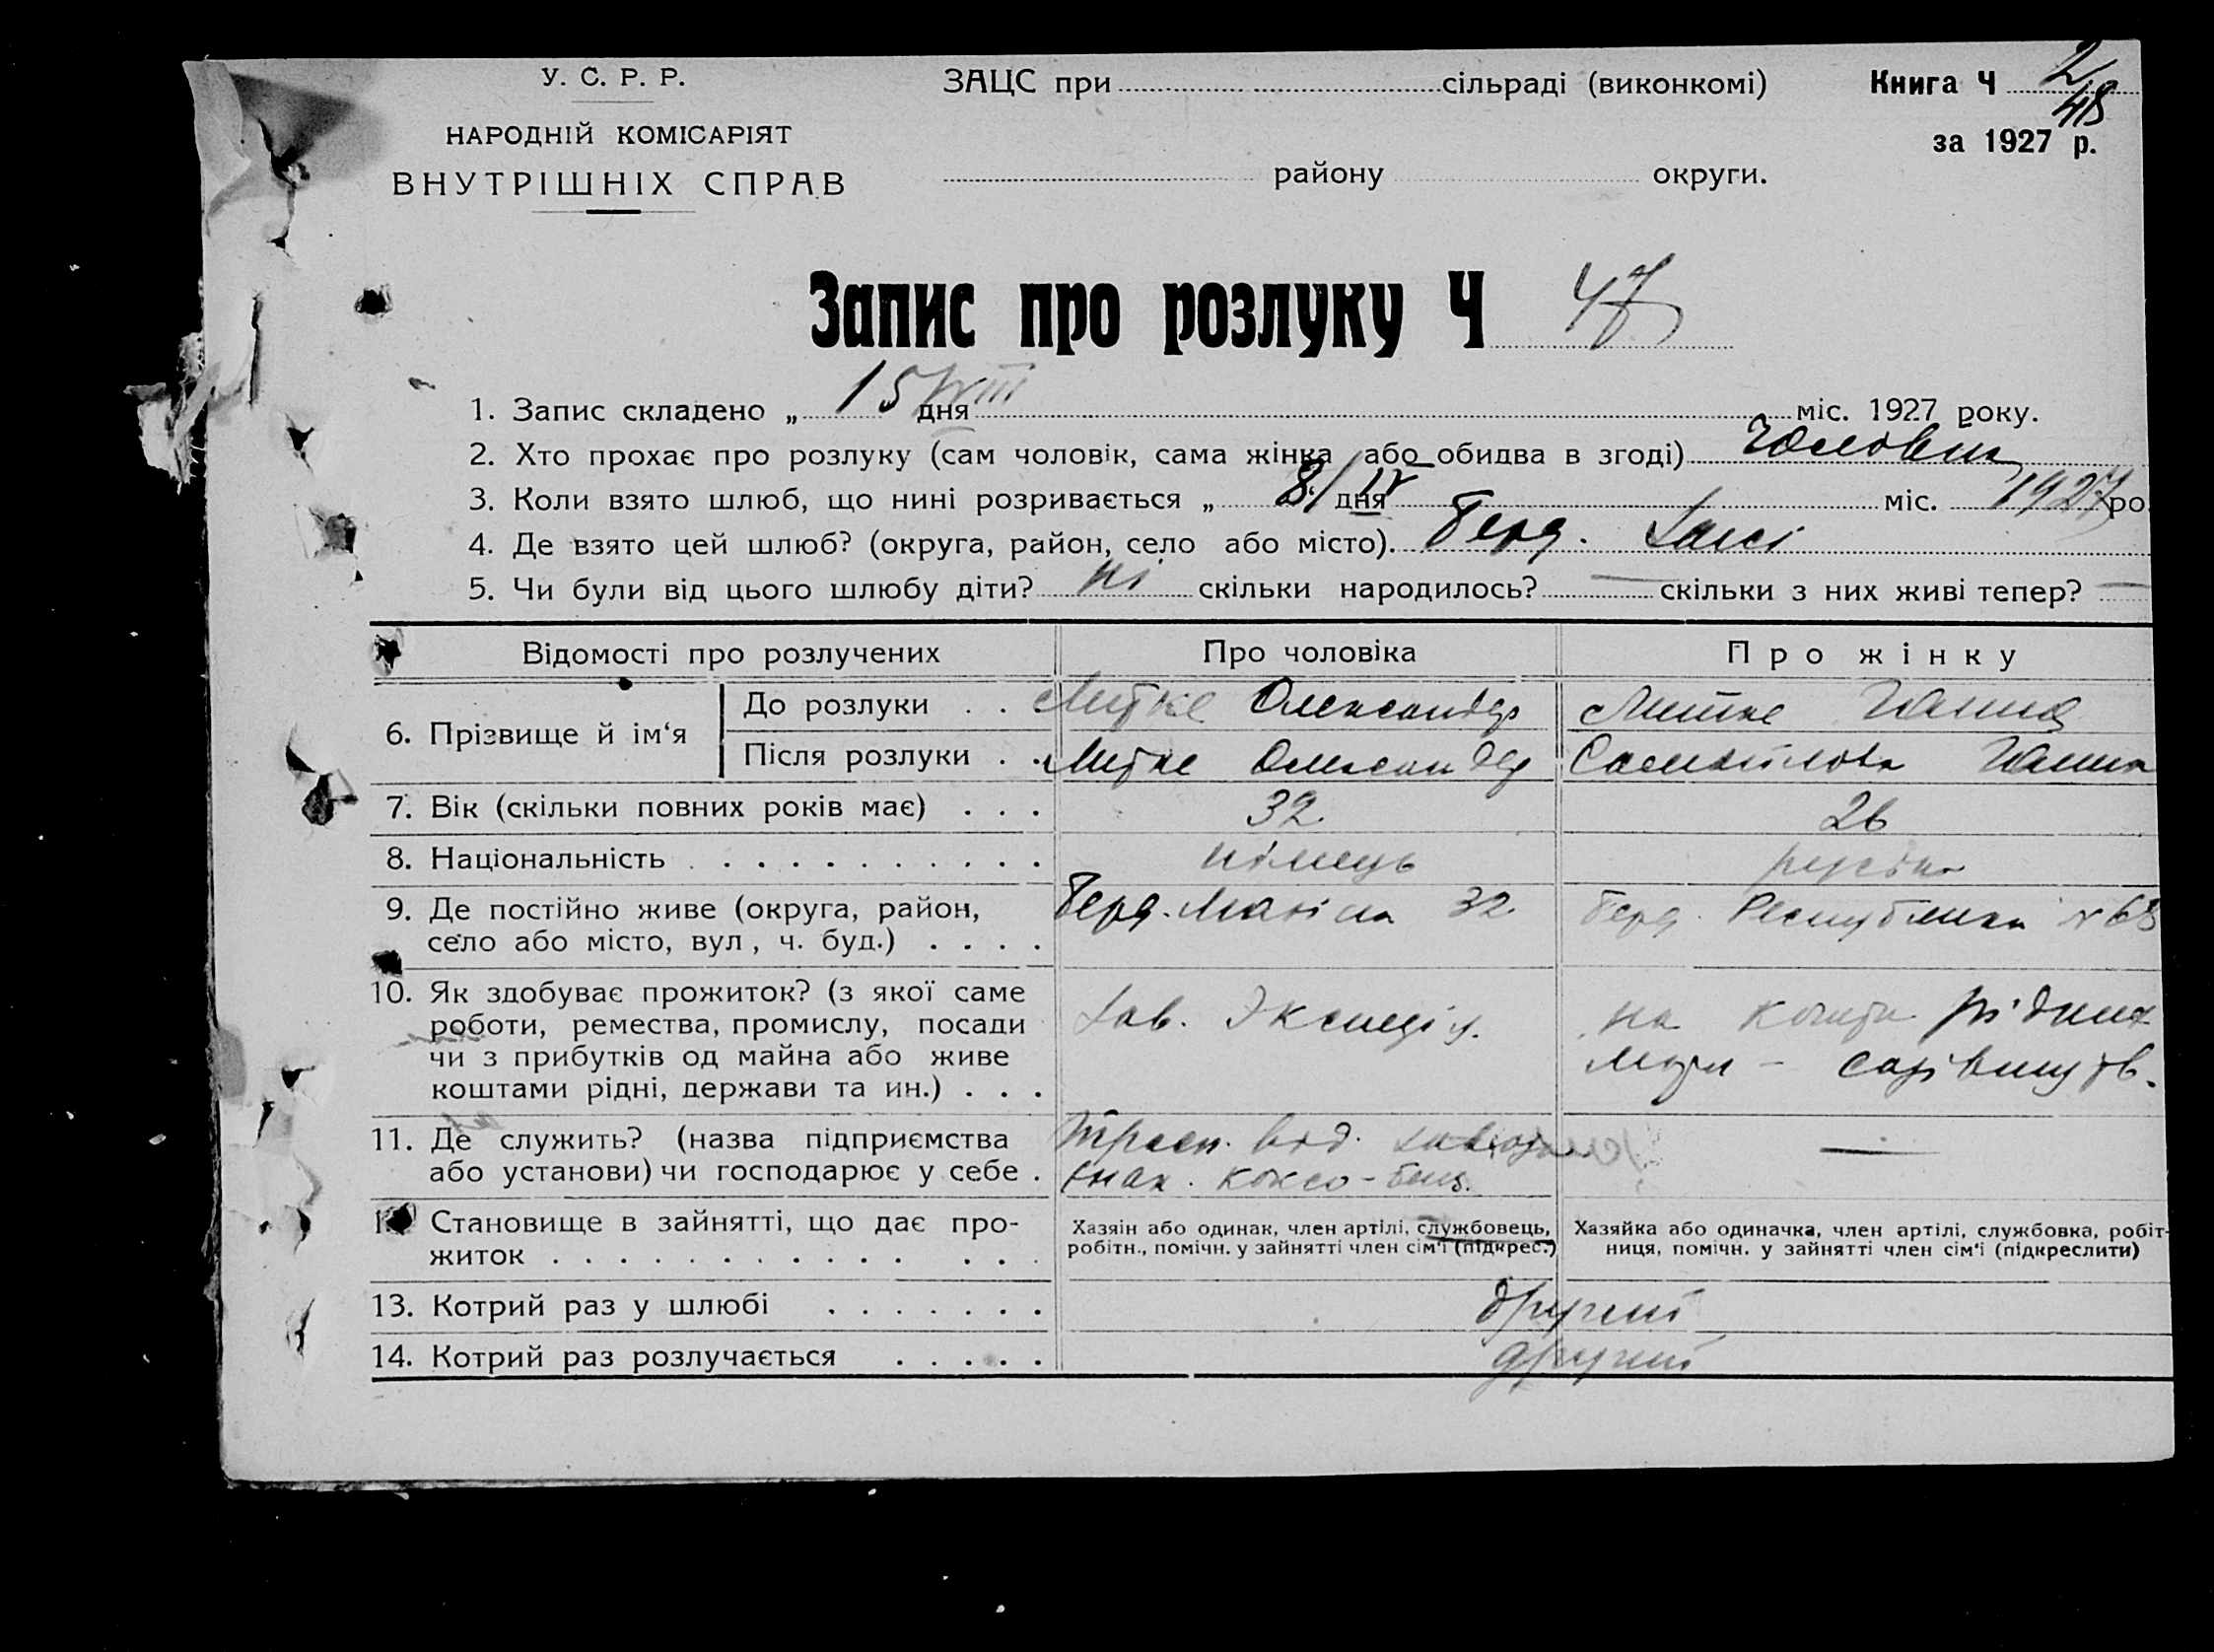 У. С. Р. Р.
НАРОДНІЙ КОМІСАРІЯТ
ВНУТРІШНІХ СПРАВ
ЗАЦС при сільраді (виконкомі)
району округи.
Книга Ч 2/48
за 1927 р.
Запис про розлуку Ч 47
1. Запис складено „ 15/VIII дня міс. 1927 року.
2. Хто прохає про розлуку (сам чоловік, сама жінка або обидва в згоді) Чоловік
3. Коли взято шлюб, що нині розривається „ 8/IV дня міс. 1927 ро
4. Де взято цей шлюб? (округа, район, село або місто). Берд. Загсі
5. Чи були від цього шлюбу діти? ні скільки народилось? — скільки з них живі тепер? —
Відомості про розлучених Про чоловіка Про жінку
6. Прізвище й ім‘я
До розлуки . . Митке Олександер Митке Ганна
Після розлуки . . Митке Олександер Самойлова Ганна
7. Вік (скільки повних років має) . . . 32 26
8. Національність . . . . . . . . . . німець руська
9. Де постійно живе (округа, район,
село або місто, вул , ч. буд.) . . . .
Берд. 32 Берд. Республіки № 68
10. Як здобуває прожиток? (з якої саме
роботи, ремества, промислу, посади
чи з прибутків од майна або живе
коштами рідні, держави та ин.) . . .
Зав. на кошти рідних
11. Де служить? (назва підприємства
або установи) чи господарює у себе .
коксо-бенз. —
Становище в зайнятті, що дає про-
житок . . . . . . . . . . . . . .
Хазяін або одинак, член артілі, службовець,
робітн., помічн. у зайнятті член сім‘ї (підкрес.)
Хазяйка або одиначка, член артілі, службовка, робіт-
ниця, помічн. у зайнятті член сім‘ї (підкреслити)
13. Котрий раз у шлюбі . . . . . . . другий
14. Котрий раз розлучається . . . . . другий